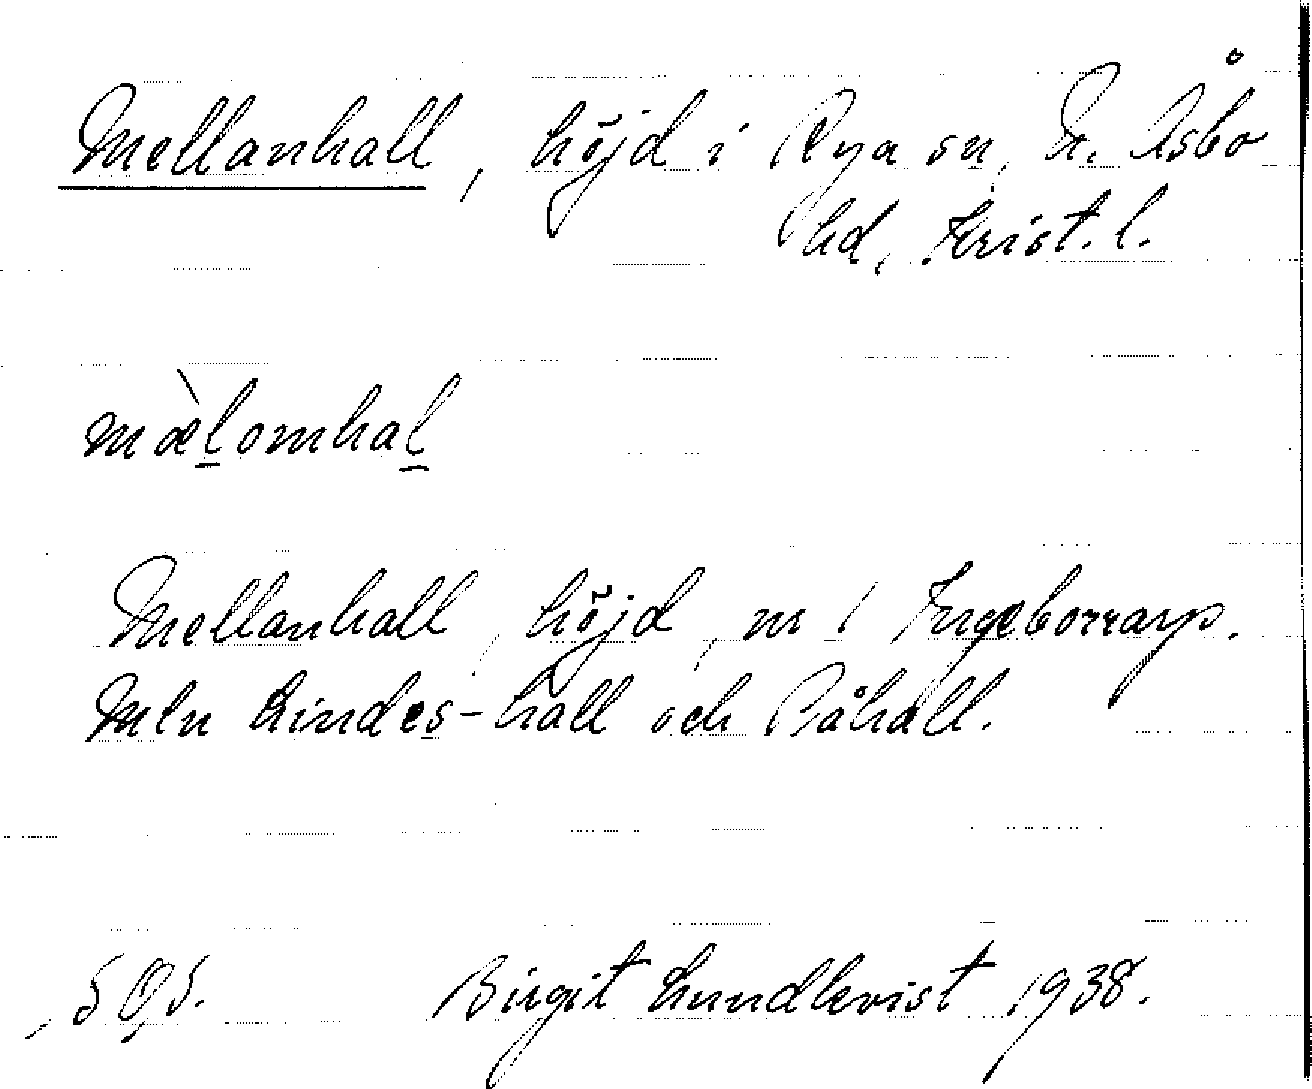 Mellanhall, höjd i Rya sn, N. Åsbo
hd, Krist. l.
mæ̀l̲omhal̲
Mellanhall, höjd, nr 1 Ingeborrarp.
Mln Lindes-hall och Råhall.
Birgit Lundkvist 1938.